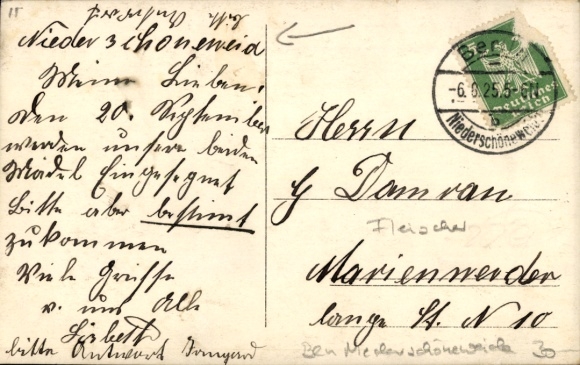 bitte Antwort
Niederschöneweide
Meine Lieben,
Den 20. September
werden unsere beiden
Mädel Eingesegnet
Bitte aber bestimt
zu kommen
Viele Grüsse
v. uns Alle
Lisbeth
bitte Antwort Irmgard
Herrn
G Damran
Fleischer
Marienwerder
lange St. N 10
Bln Niederschöneweide 30-
Berlin
-6.8.25.5-6N
b
Niederschöneweide
Deutsches
Reich